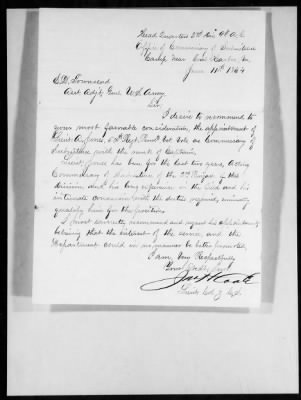 Head Quarters 2nd Div 9th A.C.
Office of Commissary of Subsistence
Camp Near Cold Harbor Va
June 11th 1864
E.D. Townsend
Asst Adjt Genl U.S. Army
Sir
I desire to recommend to
your most favorable consideration, the appointment of
Lieut Jones, Regt Vols as Commissary of
Subsistence with the rank of Captain.
Lieut Jones has been for the last two years, Acting
Commissary of Subsistence of the 2nd Brigade of this
division and his long experience in the field and his
intimate connexion with the duties required, eminently
qualify him for the position.
I most earnestly recommend and request his appointment
believing that the interest of the service, and the
Department could in no manner be better promoted.
I am, Very Respectfully
Your Obdt Servt
Coale
Lieut Col & C.S.